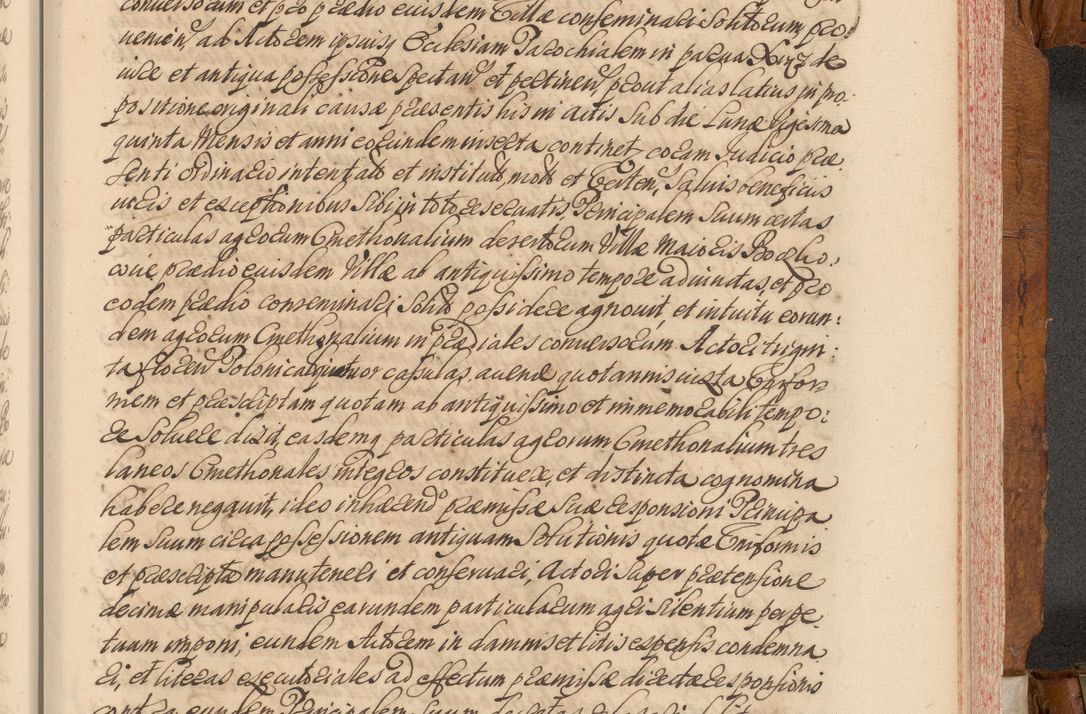 conversorum et pro prædio eiusdem Villæ conseminari solitorum pro
venien, ad Actorem ipsiusq Ecclesiam Parochialem in parva de
iure et antiqua possessione spectan et pertinen, prout alias latius in pro
positione originali causæ præsentis his in actis sub die Lunæ vigesima
quinta Mensis et anni eorundem inserta continet, coram Judicio præ
senti ordinario intentatæ et institutæ, motæ et Verten, Salvis beneficiis
iuris et exceptionibus sibi in toto reservatis, Principalem suum certas
particulas agrorum Cmethonalium desertorum Villæ Maioris
prædio eiusdem Villæ ab antiquissimo tempore adiunctas, et pro
eodem prædio conseminari solitas possidere agnovit, et intuitu eorun:
dem agrorum Cmethonalium in prædiales conversorum, Actori trigin:
ta florenos Polonicales quatuor capsulas avenæ quotannis iuxta Unifor
mem et præscriptam quotam ab antiquissimo et immemorabili tempo:
re solvere dixit, easdemq particulas agrorum Cmethonalium tres
laneos Cmethonales integros constituere, et distincta cognomina
habere negavit, ideo inhærendo præmissæ suæ responsioni Principa
lem suum circa possessionem antiquam solutionis quotæ Uniformis
et præscriptæ manuteneri et conservari, Actori super prætensione
decimæ manipularis earundem particularum agri silentium perpe
tuum imponi, eundem Actorem in damnis et litis expensis condemna
ri, et literas executoriales ad effectum præmissæ directæ responsionis
eundem Principalem suum